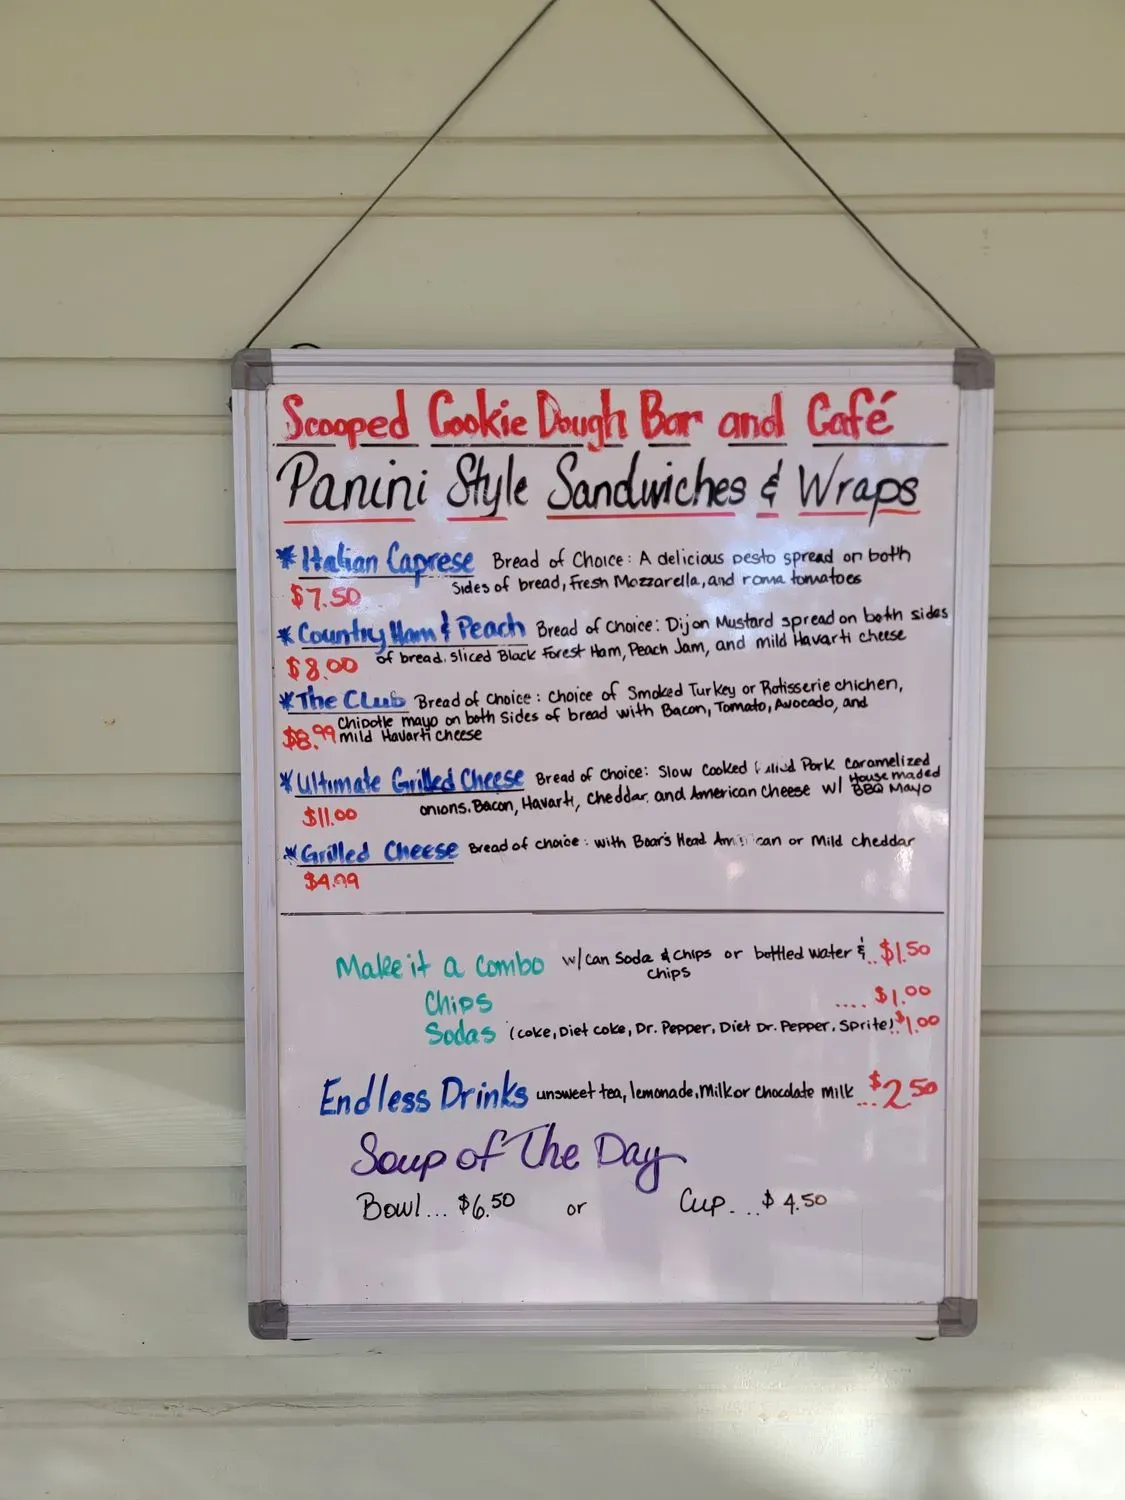 Scooped Cookie Dough Bar and Café
Panini Style Sandwiches & Wraps
* Italian Caprese Bread of Choice: A delicious pesto spread on both
$7.50 Sides of bread, Fresh Mozzarella, and roma tomatoes
* Country Ham & Peach Bread of Choice: Dijon Mustard spread on both sides
$8.00 of bread. sliced Black Forest Ham, Peach Jam, and mild Havarti cheese
* The Club Bread of Choice: Choice of Smoked Turkey or Rotisserie chicken,
Chipotle mayo on both sides of bread with Bacon, Tomato, Avocado, and
$8.99 mild Havarti cheese
* Ultimate Grilled Cheese Bread of Choice: Slow Cooked Pork Caramelized
$11.00 onions. Bacon, Havarti, Cheddar, and American Cheese w/ House maded BBQ Mayo
* Grilled Cheese Bread of choice: with Boar's Head American or Mild cheddar
$4.99
Make it a Combo w/can Soda & Chips or bottled water &.. $1.50
chips
Chips .... $1.00
Sodas (Coke, Diet Coke, Dr. Pepper, Diet Dr. Pepper, Sprite) $1.00
Endless Drinks unsweet tea, lemonade, Milk or Chocolate Milk ... $2.50
Soup of The Day
Bowl... $6.50 or Cup... $4.50